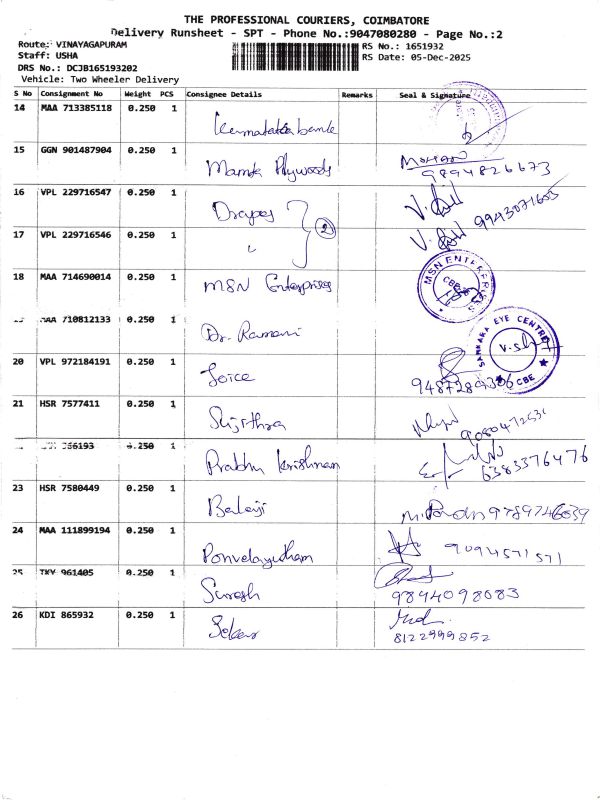 THE PROFESSIONAL COURIERS, COIMBATORE
Delivery Runsheet - SPT - Phone No.:9047080280 - Page No.:2
Route: VINAYAGAPURAM
Staff: USHA
DRS No.: DCJB165193202
Vehicle: Two Wheeler Delivery
RS No.: 1651932
RS Date: 05-Dec-2025
S No Consignment No Weight PCS Consignee Details Remarks Seal & Signature
14 MAA 713385118 0.250 1
15 GGN 901487904 0.250 1 Mamta Plywoods
9894826673
16 VPL 229716547 0.250 1 Drapes 2 9943071655
17 VPL 229716546 0.250 1 "
18 MAA 714690014 0.250 1 MSN Enterprises MSN ENTERPRISES CBE
MAA 710812133 0.250 1 Dr. Ramani SANKARA EYE CENTRE CBE
20 VPL 972184191 0.250 1 Joice
21 HSR 7577411 0.250 1 Sujithra
0.250 1 Prabhu Krishnan 6383376476
23 HSR 7580449 0.250 1 Balaji 9789746039
24 MAA 111899194 0.250 1 Ponvelayutham 9094571571
25 TKY 961405 0.250 1 Suresh
9894098083
26 KDI 865932 0.250 1
8122999852